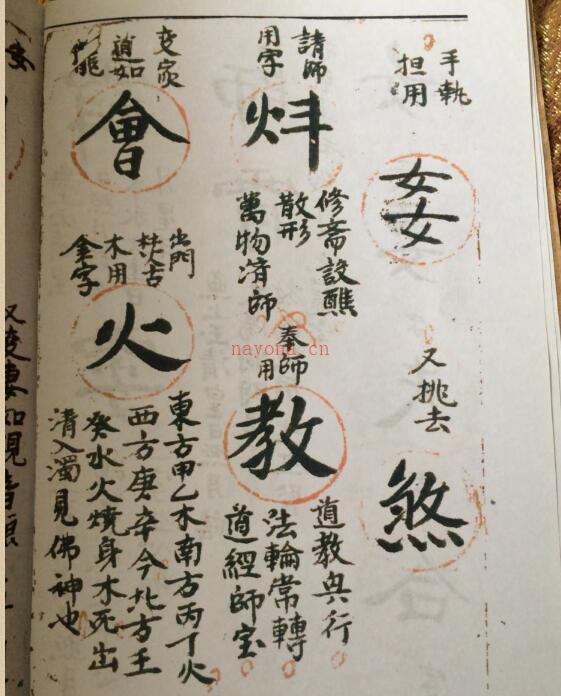 手執
担用
又挑去
煞
請師
用字
炐
修斋設醮
散形
萬物済師
奉師
用
教
道教兴行
法輪常轉
道經師宝
道如
會
出門
木用
金字
火
東方甲乙木南方丙丁火
西方庚辛今北方王
癸水火燒身木死出
清入濁見佛神也
nayona.cn